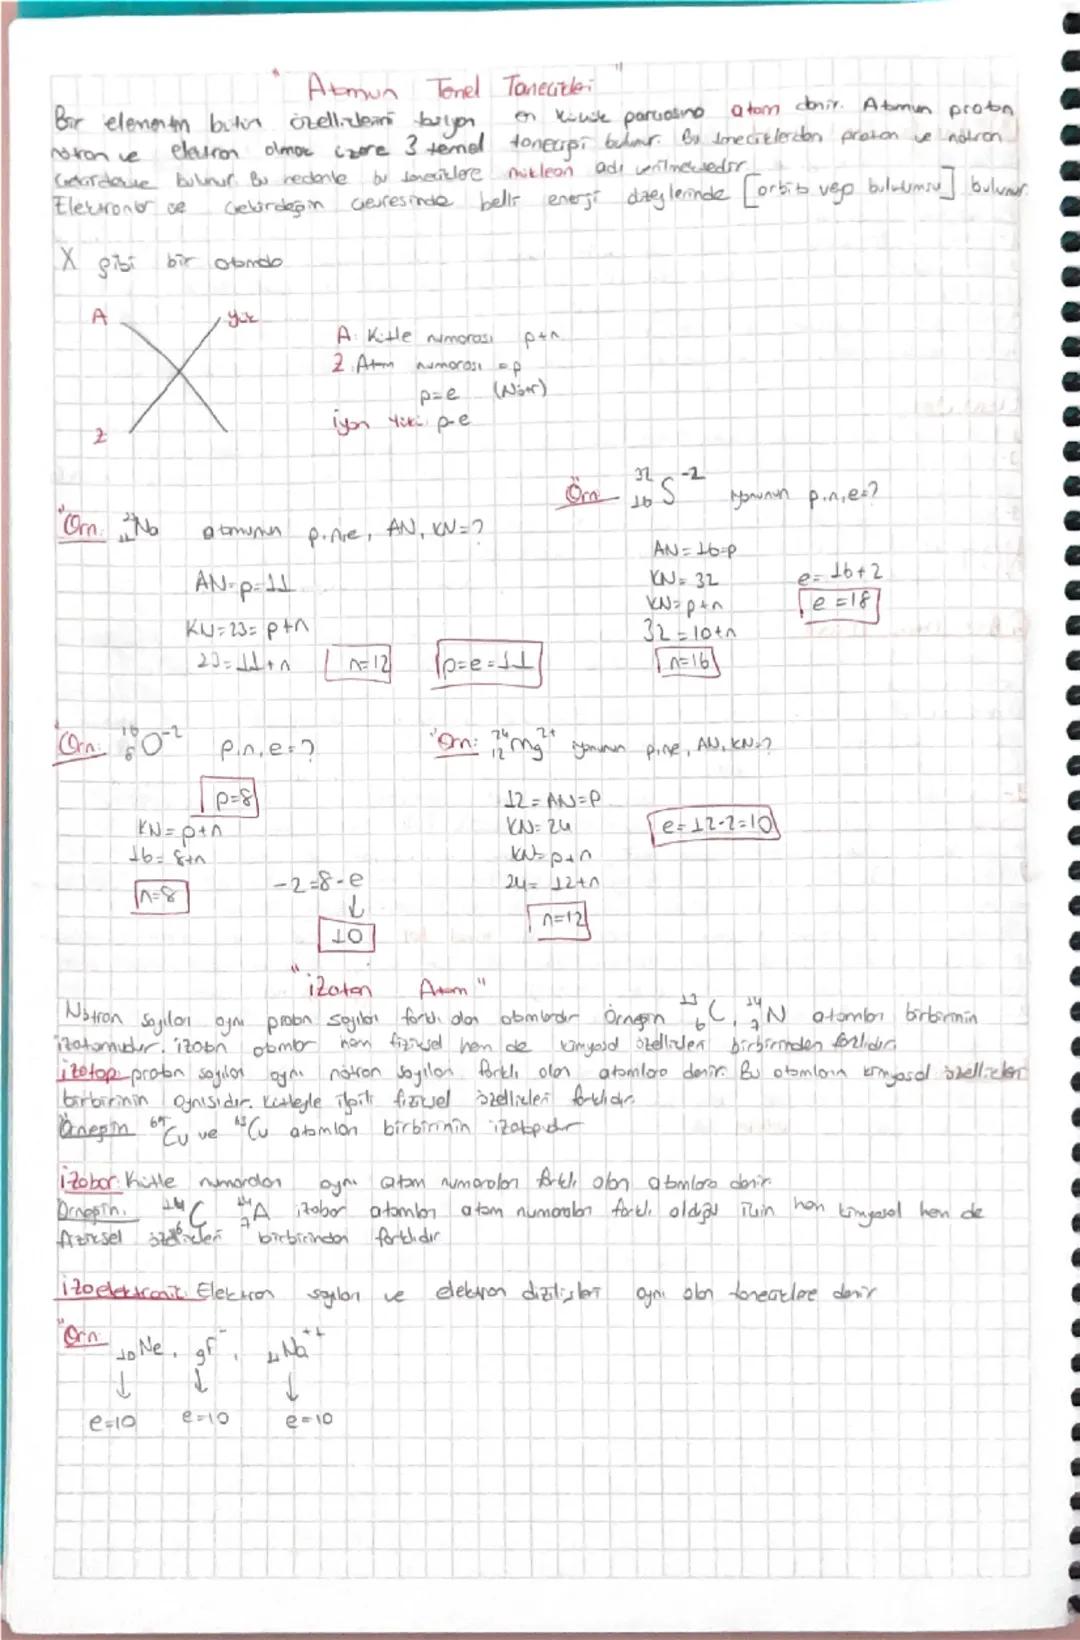 "Atomun Temel Tanecikleri"
Bir elementin bütün özelliklerini taşıyan en küçük parçasına atom denir. Atomun proton
nötron ve elektron olmak üzere 3 temel taneciği bulunur. Bu taneciklerden proton ve nötron
çekirdekte bulunur. Bu nedenle bu taneciklere nükleon adı verilmektedir.
Elektronlar ise çekirdeğin çevresinde belir enerji düzeylerinde [orbit veya bulutumsu] bulunur.
X gibi bir atomda
A yük
Z
A: Kütle numarası p+n
Z: Atom numarası =p
p=e (Nötr)
iyon yükü: p-e
"Örn: ²³₁₁Na atomunun p,n,e, AN, KN=?
AN=p=11
KN=23=p+n
23=11+n n=12 p=e=11
Örn ³²₁₆S⁻² iyonunun p,n,e=?
AN=16=p
KN=32
KN=p+n
32=10+n
n=16
e=16+2
e=18
"Örn: ¹⁶₈O⁻² p,n,e=?
p=8
KN=p+n
16=8+n
n=8
-2=8-e
↓
10
"Örn: ²⁴₁₂Mg²⁺ iyonunun p,n,e, AN, KN=?
12=AN=P
KN=24
KN=p+n
24=12+n
n=12
e=12-2=10
"izoton Atom"
Nötron sayıları aynı proton sayıları farklı olan atomlardır Örneğin ¹³₆C, ¹⁴₇N atomları birbirinin
izotonudur. izoton atomlar hem fiziksel hem de kimyasal özellikleri birbirinden farklıdır.
izotop proton sayıları aynı nötron sayıları farklı olan atomlara denir. Bu atomların kimyasal özellikleri
birbirinin aynısıdır. Kütleyle ilgili fiziksel özellikleri farklıdır.
Örneğin ⁶⁵Cu ve ⁶³Cu atomları birbirinin izotopudur
izobar: Kütle numaraları aynı atom numaraları farklı olan atomlara denir.
Örneğin: ¹⁴₆C ¹⁴₇A izobar atomları atom numaraları farklı olduğu için hem kimyasal hem de
fiziksel özellikleri birbirinden farklıdır
izoelektronik: Elektron sayıları ve elektron dizilişleri aynı olan taneciklere denir
"Örn: ₁₀Ne, ₉F⁻, ₁₁Na⁺⁺
↓ ↓ ↓
e=10 e=10 e=10